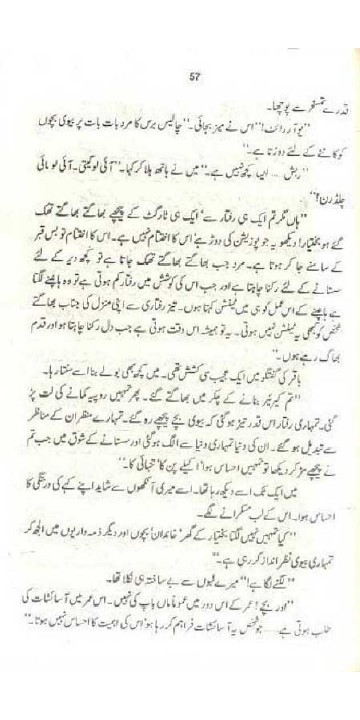 57
قدرے تمسخر سے پوچھا۔
"یو آر رائٹ!" اس نے میز بجائی۔ "چالیس برس کا مرد بات بات پر بیوی بچوں
کو کاٹنے کے لئے دوڑتا ہے۔"
"ربش ... ایسا کچھ نہیں ہے۔" میں نے ہاتھ ہلا کر کہا۔ "آئی لو گیتی۔ آئی لو مائی
چلڈرن!"
"ہاں مگر تم ایک ہی رفتار سے' ایک ہی ٹارگٹ کے پیچھے بھاگتے بھاگتے تھک
گئے ہو بختیار! دیکھو یہ جو پوزیشن کی دوڑ ہے' اس کا اختتام نہیں ہے۔ اس کا اختتام تو بس قبر
کے سامنے جا کر ہوتا ہے۔ مرد جب بھاگتے بھاگتے تھک جاتا ہے تو کچھ دیر کے لئے
سستانے کے لئے رکنا چاہتا ہے اور جب اس کی کوشش میں رفتار کم ہوتی ہے تو وہ ہانپنے لگتا
ہے ہانپنے کے اس عمل کو ہی میں ٹینشن کہتا ہوں۔ تیز رفتاری سے اپنی منزل کی جناب بھاگتے
شخص کو کبھی یہ ٹینشن نہیں ہوتی۔ یہ تو ہمیشہ اس وقت ہوتی ہے جب دل رکنا چاہتا ہو اور قدم
بھاگ رہے ہوں۔"
باقر کی گفتگو میں ایک عجیب سی کشش تھی۔ میں کچھ بھی بولے بنا اسے سنتا رہا۔
"تم کیریئر بنانے کے چکر میں بھاگتے گئے۔ پھر تمہیں روپیہ کمانے کی لت پڑ
گئی۔ تمہاری رفتار اس قدر تیز ہو گئی کہ بیوی بچے پیچھے رہ گئے۔ تمہارے منظر ان کے مناظر
سے تبدیل ہو گئے۔ ان کی دنیا تمہاری دنیا سے الگ ہو گئی اور سستانے کے شوق میں جب تم
نے پیچھے مڑ کر دیکھا تو تمہیں احساس ہوا' اکیلے پن کا' تنہائی کا۔"
میں ایک ٹک اسے دیکھ رہا تھا۔ اسے میری آنکھوں سے شاید اپنے کہے کی درستگی کا
احساس ہوا۔ اس کے لب مسکرانے لگے۔
"کیا تمہیں نہیں لگتا بختیار کے گھر' خاندان' بچوں اور دیگر ذمہ داریوں میں الجھ کر
تمہاری بیوی نظر انداز کر رہی ہے۔"
"لگنے لگا ہے!" میرے لبوں سے بے ساختہ ہی نکلا تھا۔
"اور بچے! عمر کے اس دور میں عموماً ماں باپ کی نہیں۔ اس عمر میں آسائشات کی
طلب ہوتی ہے ___ جو شخص یہ آسائشات فراہم کر رہا ہو' اس کی اہمیت کا احساس نہیں ہوتا۔"